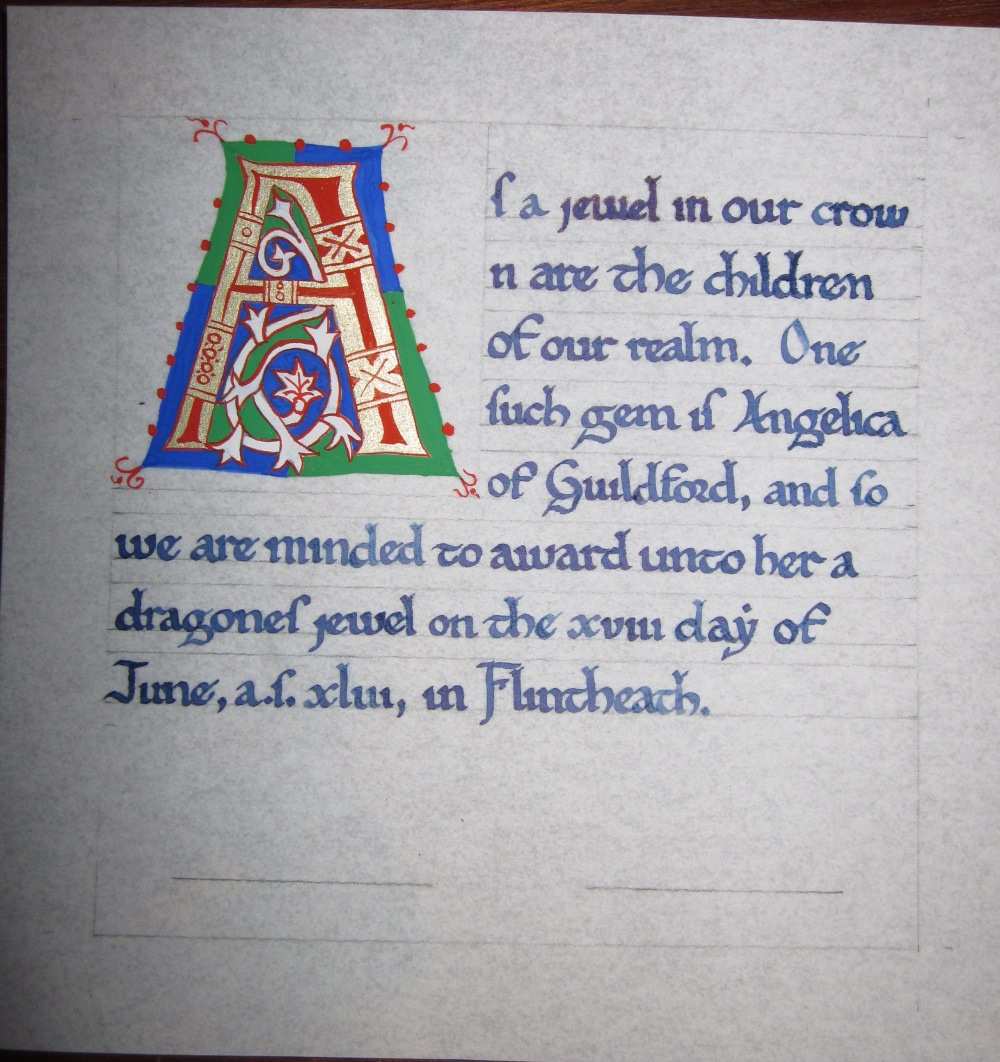 Aſ a jewel in our crow
n are the children
of our realm. One
ſuch gem iſ Angelica
of Guildford, and ſo
we are minded to award unto her a
dragoneſ jewel on the xviii daẏ of
June, a.ſ. xliii, in Flintheath.